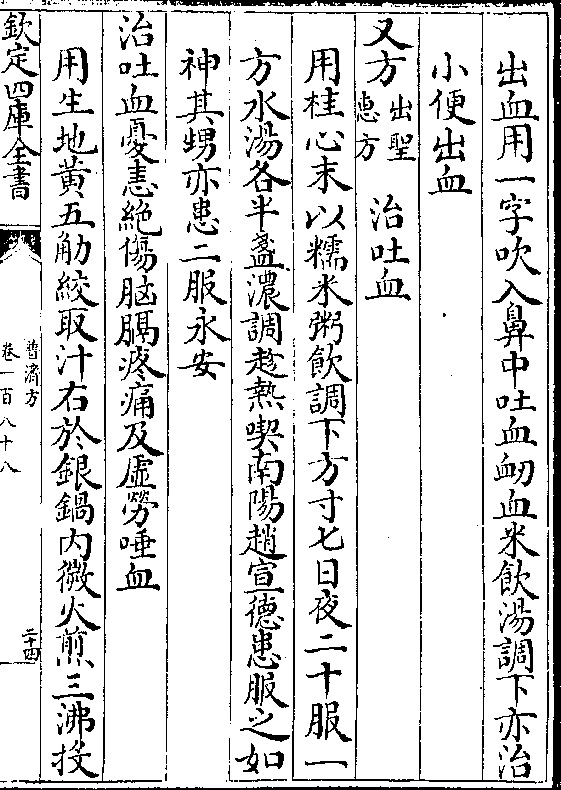 出血用一字吹入鼻中吐血衂血米飲湯調下亦治
小便出血
又方出聖惠方 治吐血
用桂心末以糯米粥飲調下方寸七日夜二十服一
方水湯各半盞濃調趁熱喫南陽趙宣德患服之如
神其甥亦患二服永安
治吐血憂恚絶傷胸膈疼痛及虛勞唾血
用生地黄五觔絞取汁右於銀鍋内微火煎三沸投
欽定四庫全書
普濟方
卷一百八十八
二十四